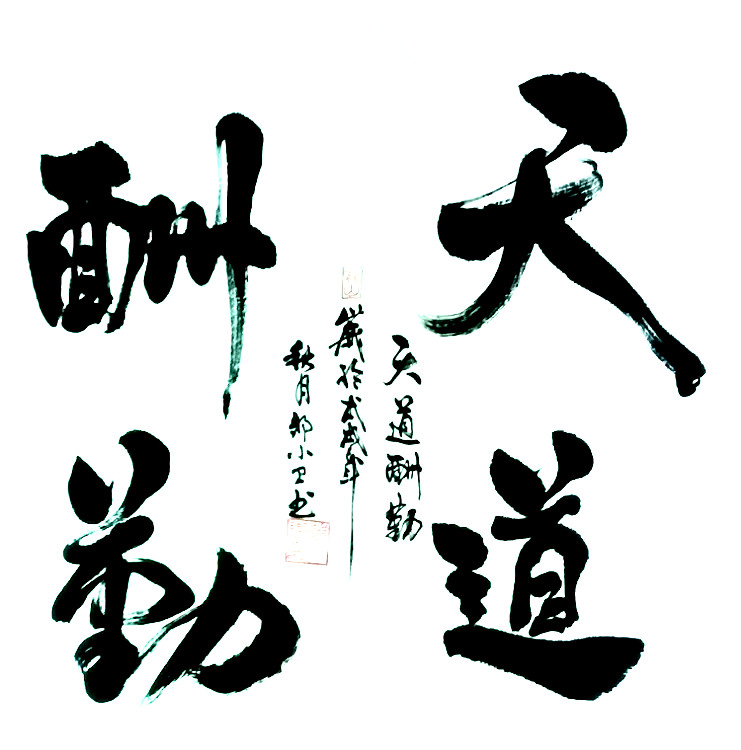 天道
酬勤
天道酬勤
歲於戊戌年
秋月邹小卫书